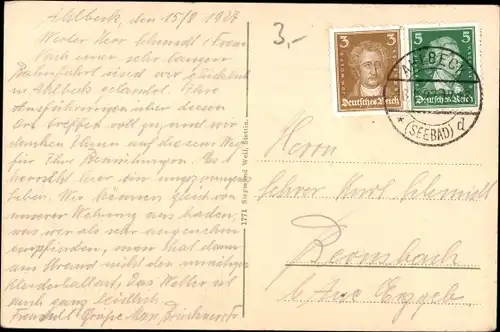 Ahlbeck, den 15/8 1927
Werter Herr Schmidt u. Frau
Nach einer sehr langen
Bahnfahrt sind wir glücklich
in Ahlbeck gelandet. Ihre
Ausführungen über diesen
Ort treffen voll zu, und wir
danken Ihnen auf diesem Weg
für Ihre Bemühungen. Es
herrscht hier ein ungezwungenes
Leben. Wir können gleich von
unserer Wohnung aus baden,
was wir als sehr angenehm
empfinden, man hat dann
am Strand nicht den unnötigen
Kleiderballast. Das Wetter ist
auch ganz leidlich.
Freundl. Grüße Max
3,-
1771 Siegmund Weil, Stettin.
3 3
Deutsches Reich
5 5
Deutsches Reich
AHLBECK
* (SEEBAD) d
Herrn
Lehrer Karl Schmidt
Bernsbach
b/ Aue Erzgeb.